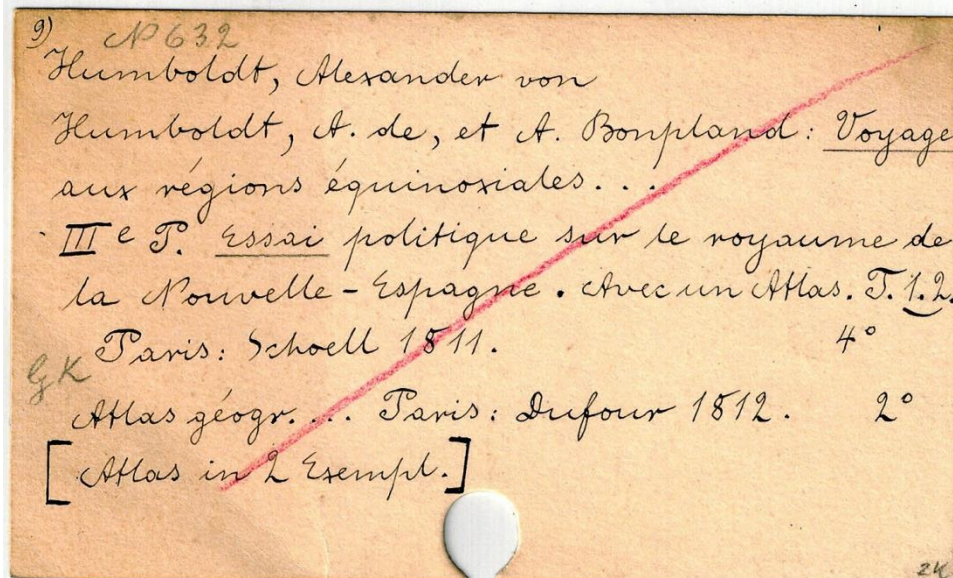 9) N 632
Humboldt, Alexander von
Humboldt, A. de, et A. Bonpland: Voyage
aux régions équinoxiales...
IIIe P. Essai politique sur le royaume de
la Nouvelle-Espagne. Avec un Atlas. T. 1.2.
Paris: Schoell 1811. 4°
GK
Atlas géogr.... Paris: Dufour 1812. 2°
[Atlas in 2 Exempl.]
2K